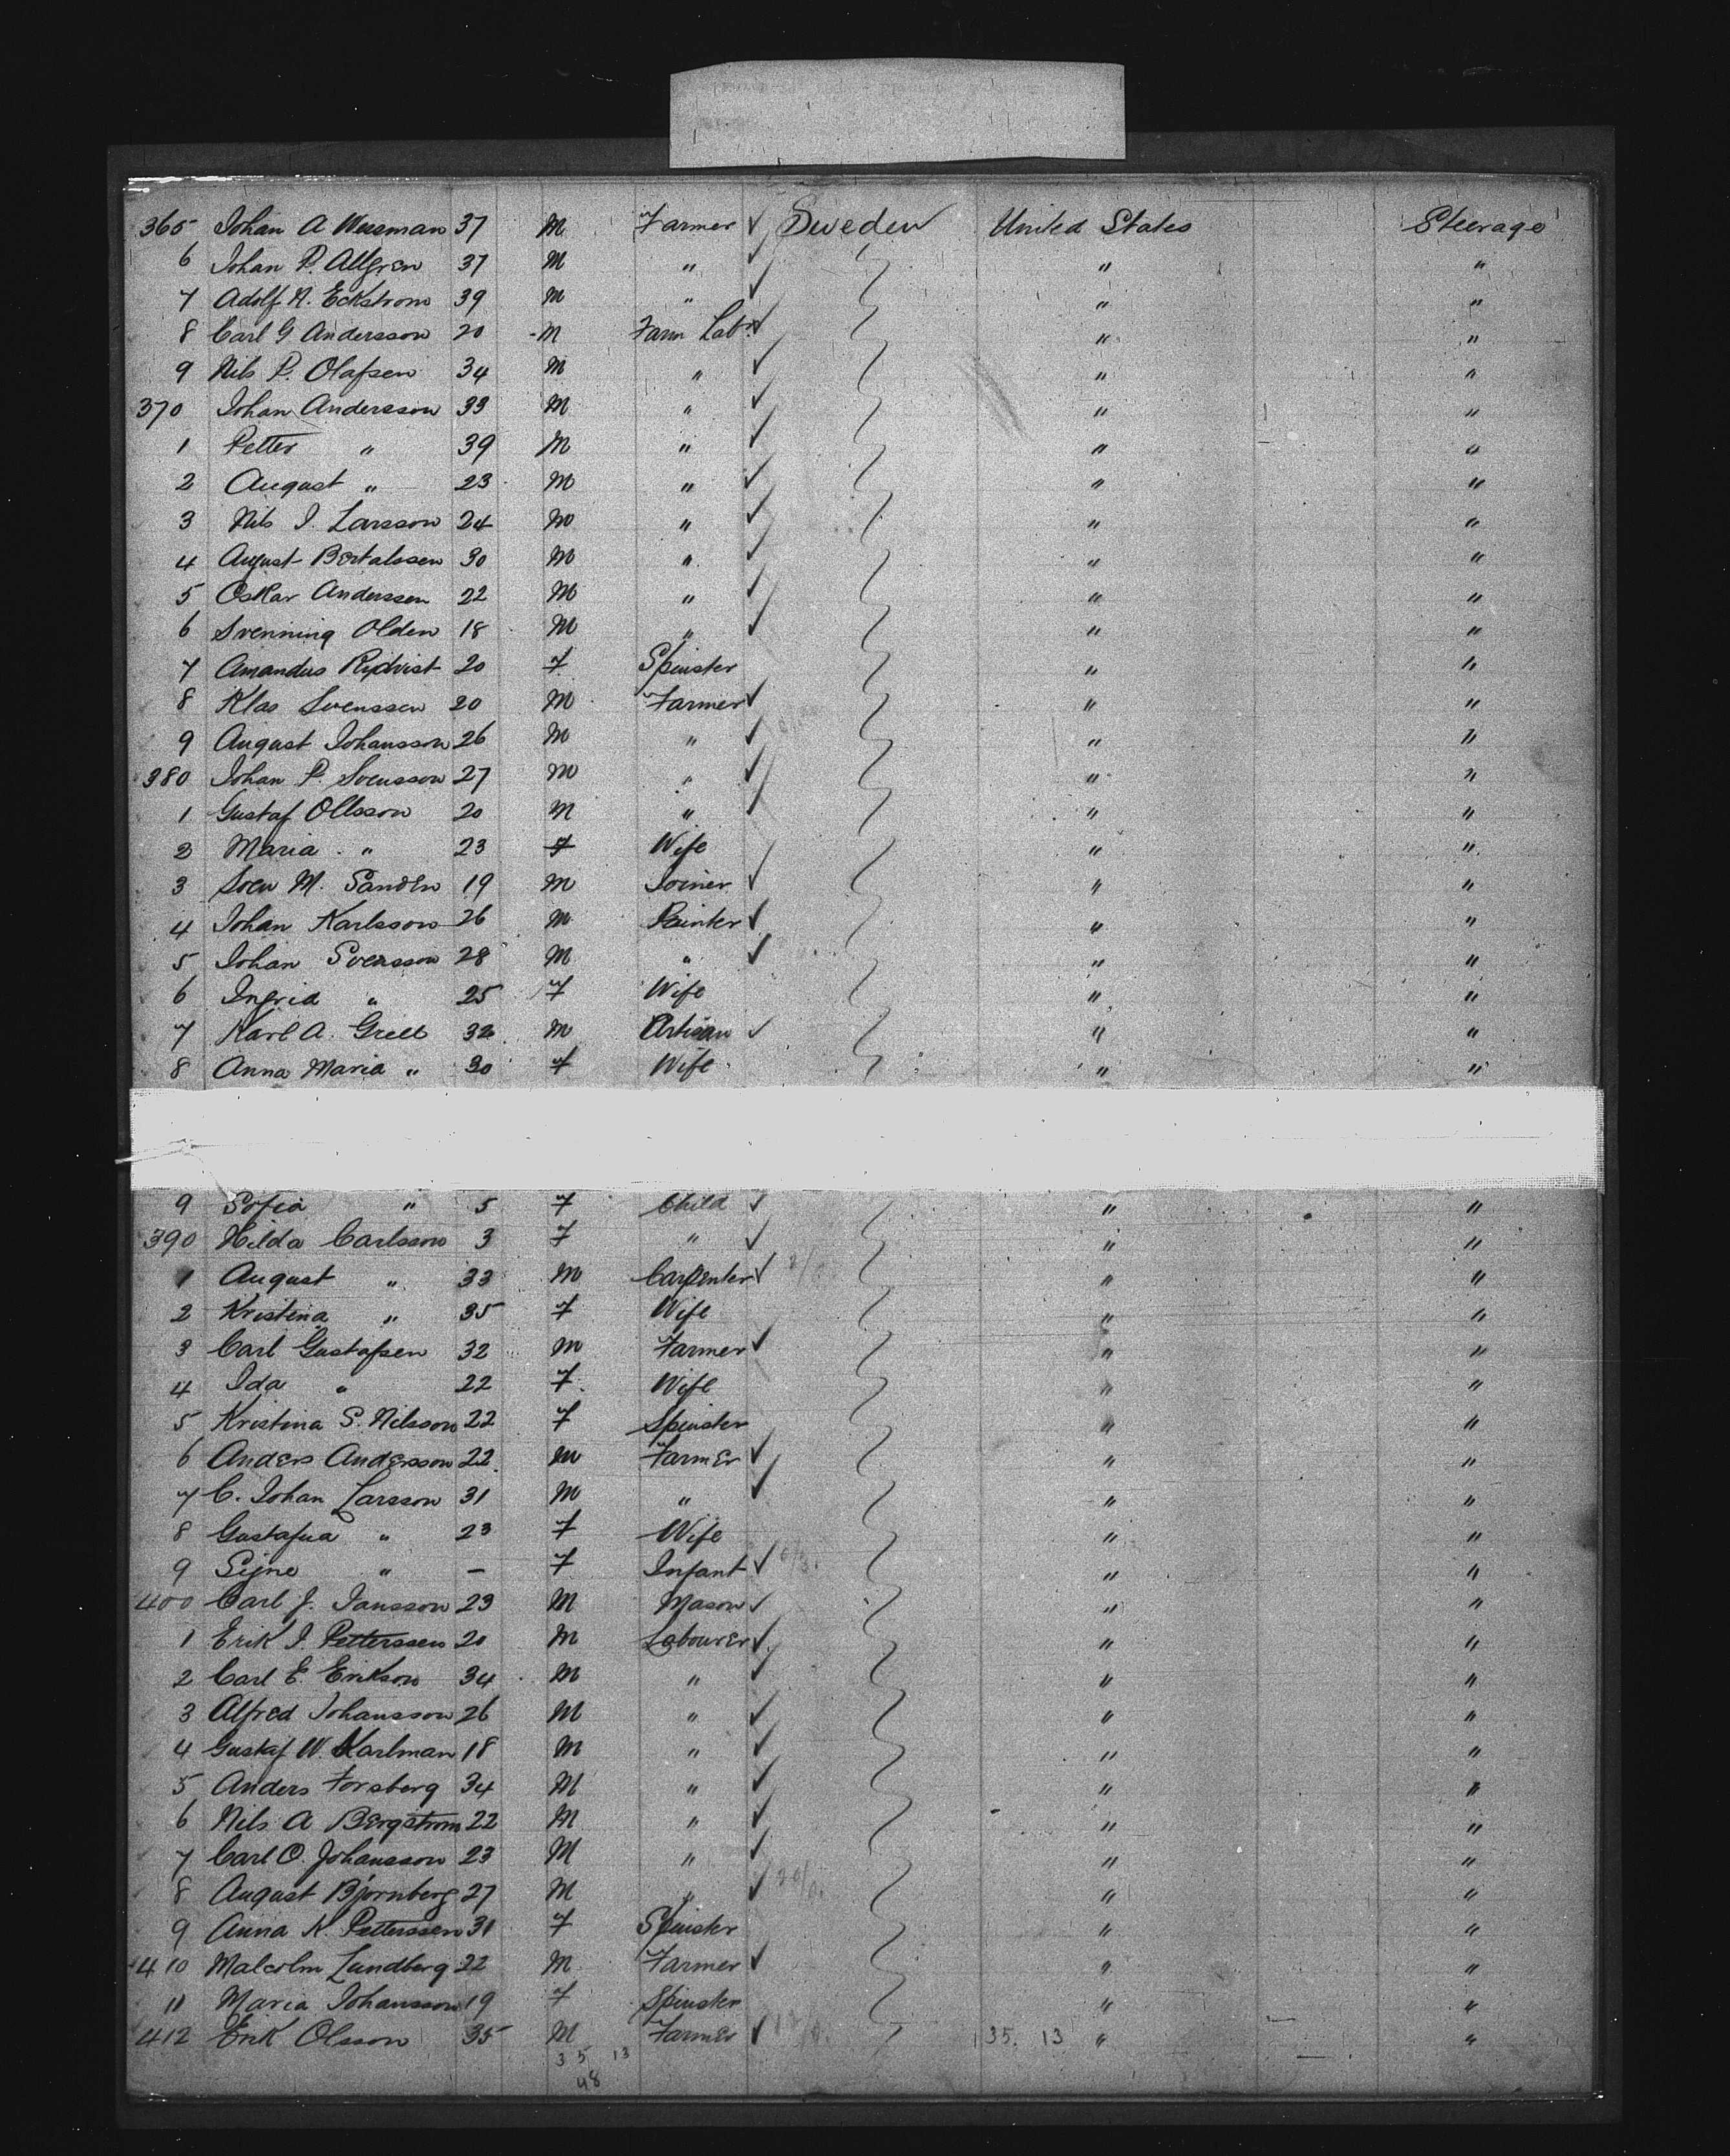 365 Johan A Wessman 37 M Farmer Sweden United States Steerage
6 Johan P. Allgren 37 M " " "
7 Adolf A. Eckstrom 39 M " " "
8 Carl G Andersson 20 M Farm Labr " "
9 Nils P. Olafsen 34 M " " "
370 Johan Andersson 33 M " " "
1 Petter " 39 M " " "
2 August " 23 M " " "
3 Nils J. Larsson 24 M " " "
4 August Bertalssen 30 M " " "
5 Oskar Anderssen 22 M " " "
6 Svenning Olden 18 M " " "
7 Amandus Rydvist 20 F Spinster " "
8 Klas Svenssen 20 M Farmer " "
9 August Johansson 26 M " " "
380 Johan P. Svensson 27 M " " "
1 Gustaf Ollsson 20 M " " "
2 Maria " 23 F Wife " "
3 Sven M. Sanden 19 M Joiner " "
4 Johan Karlsson 26 M Painter " "
5 Johan Svensson 28 M " " "
6 Ingrid " 25 F Wife " "
7 Karl A. Grell 32 M Artisan " "
8 Anna Maria " 30 F Wife " "
9 Sofia " 5 F Child " "
390 Hilda Carlsson 3 F " " "
1 August " 33 M Carpenter " "
2 Kristina " 35 F Wife " "
3 Carl Gustafsen 32 M Farmer " "
4 Ida " 22 F Wife " "
5 Kristina S. Nilsson 22 F Spinster " "
6 Anders Andersson 22 M Farmer " "
7 C. Johan Larsson 31 M " " "
8 Gustafva " 23 F Wife " "
9 Signe " - F Infant " "
400 Carl J. Jansson 23 M Mason " "
1 Erik J. Petterssen 20 M Labourer " "
2 Carl E. Erikson 34 M " " "
3 Alfred Johansson 26 M " " "
4 Gustaf W. Karlman 18 M " " "
5 Anders Forsberg 34 M " " "
6 Nils A Bergstrom 22 M " " "
7 Carl O. Johansson 23 M " " "
8 August Bjornberg 27 M " " "
9 Anna K. Petterssen 31 F Spinster " "
410 Malcolm Lundberg 22 M Farmer " "
11 Maria Johansson 19 F Spinster " "
412 Erik Olsson 35 M Farmer 35. 13 " "
35 13
48